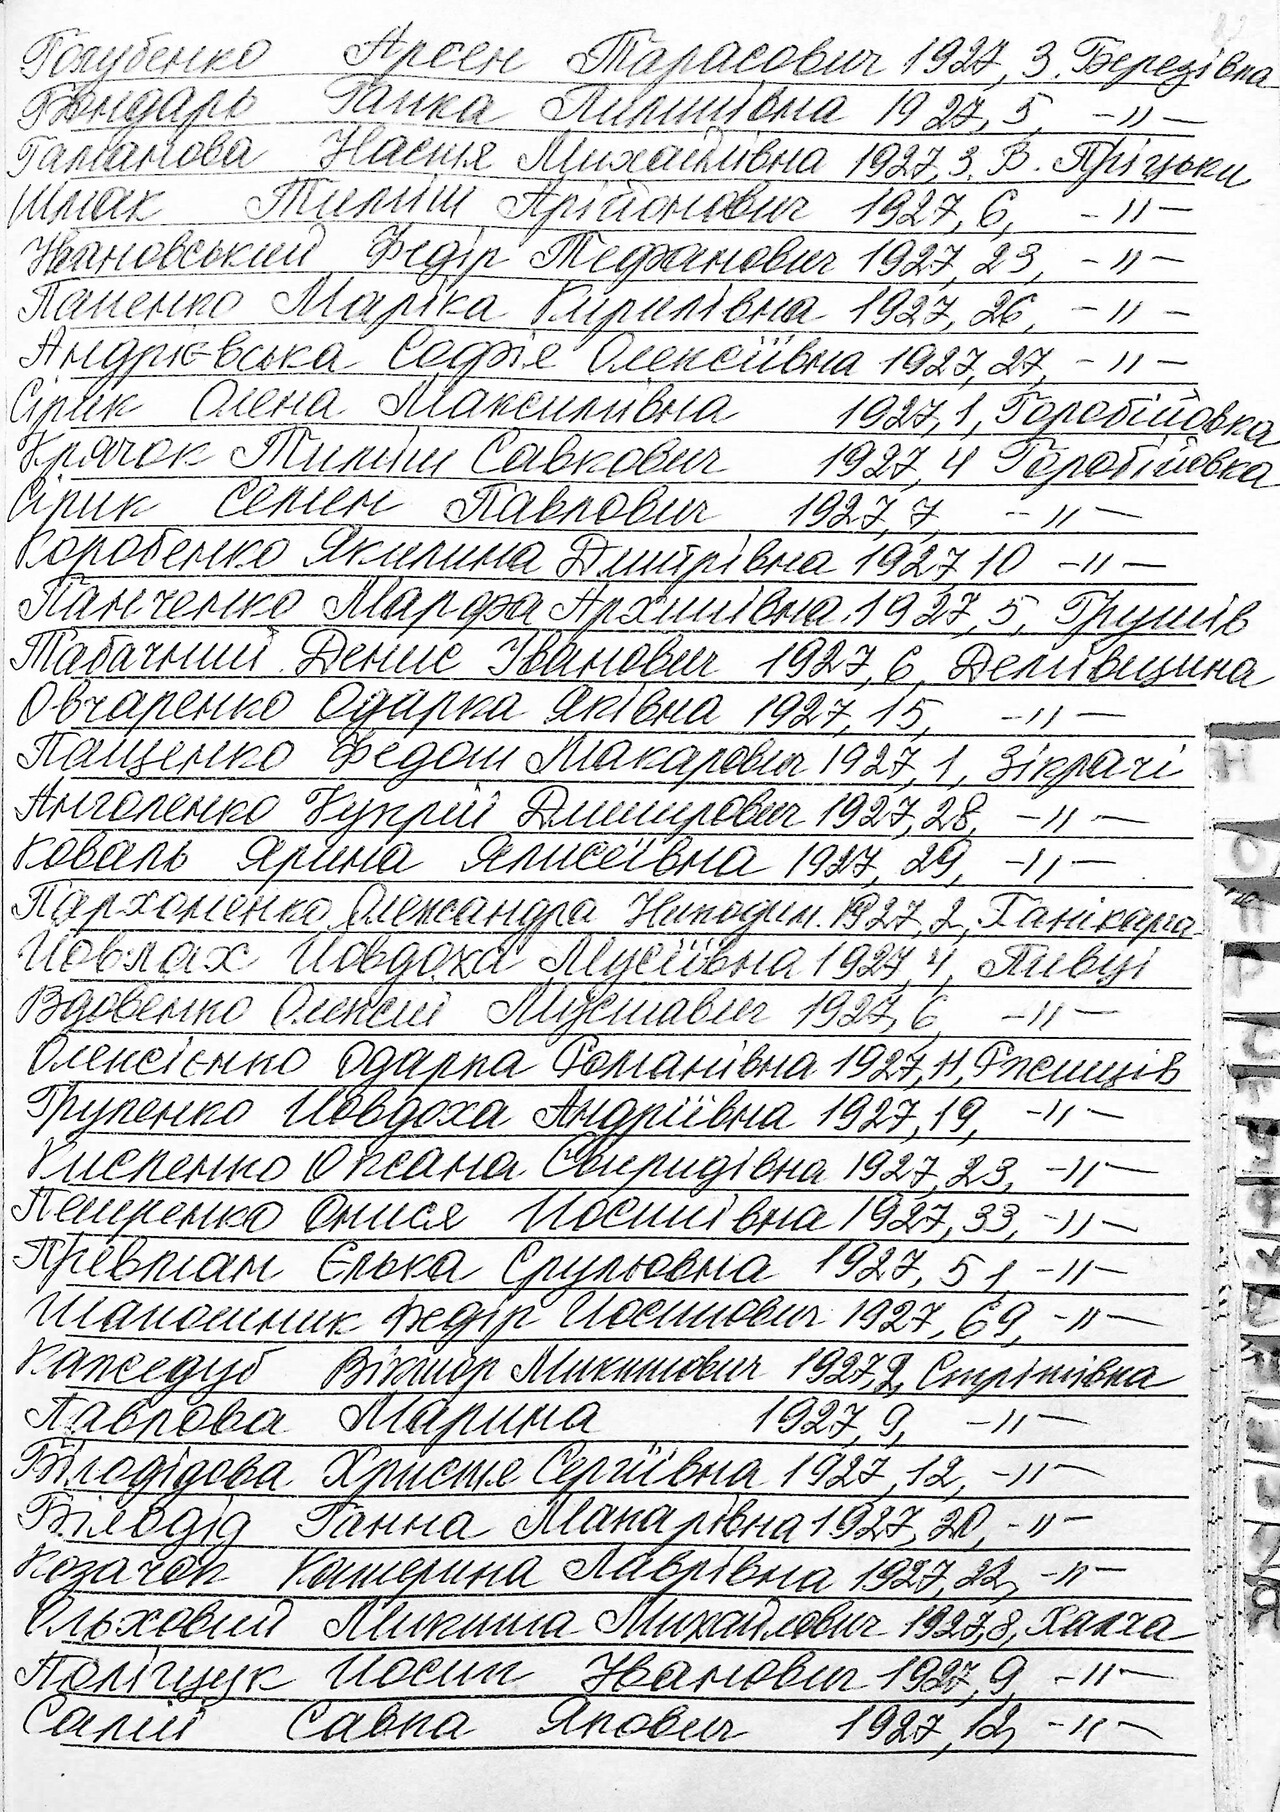 Голубенко Арсен Тарасович 1927, 3. Березівка
Бондарь Ганка Пилипівна 1927, 5, —"—
Галганова Настя Михайлівна 1927, 3. В. Пріцьки
Шпак Тиміш Арійонович 1927, 6, —"—
Івановський Федір Тефанович 1927, 23, —"—
Паненко Маріка Кирилівна 1927, 26, —"—
Андрієвська Софія Олексіївна 1927, 27, —"—
Сірик Олена Максимівна 1927, 1, Горобіївка
Крячок Тиміш Савкович 1927, 4 Горобіївка
Сірик Семен Павлович 1927, 7, —"—
Коробенко Якилина Дмитрівна 1927, 10 —"—
Панченко Марфа Архипівна. 1927, 5, Грушів
Табачний Денис Іванович 1927, 6, Демівщина
Овчаренко Одарка Яківна 1927, 15, —"—
Пащенко Федот Макарович 1927, 1, Зікрачі
Анголенко Купрій Дмитрович 1927, 28, —"—
Коваль Ярина Ялисеївна 1927, 29, —"—
Пархоменко Олександра Никодим. 1927, 2,
Йовпах Йовдоха Мусіївна 1927, 4, Пивці
Вдовенко Олексій 1927, 6, —"—
Олексієнко Одарка Романівна 1927, 11, Ржищів
Групенко Йовдоха Андріївна 1927, 19, —"—
Кисленко Оксана Свиридівна 1927, 23, —"—
Петренко Онися Йосипівна 1927, 33, —"—
Прівман Єлька Срулювна 1927, 51 —"—
Шапошник Федір Йосипович 1927, 69, —"—
Кажедуб Віктор Микитович 1927, 2, Стрітівка
Лаврова Марина 1927, 9, —"—
Білодідова Христя Сергіївна 1927, 12, —"—
Білодід Ганна Макарівна 1927, 20, —"—
Козачок Катерина Лаврівна 1927, 22, —"—
Ольховий Микита Михайлович 1927, 8, Халча
Поліщук Йосип Іванович 1927, 9, —"—
Салій Савка Якович 1927, 12, —"—